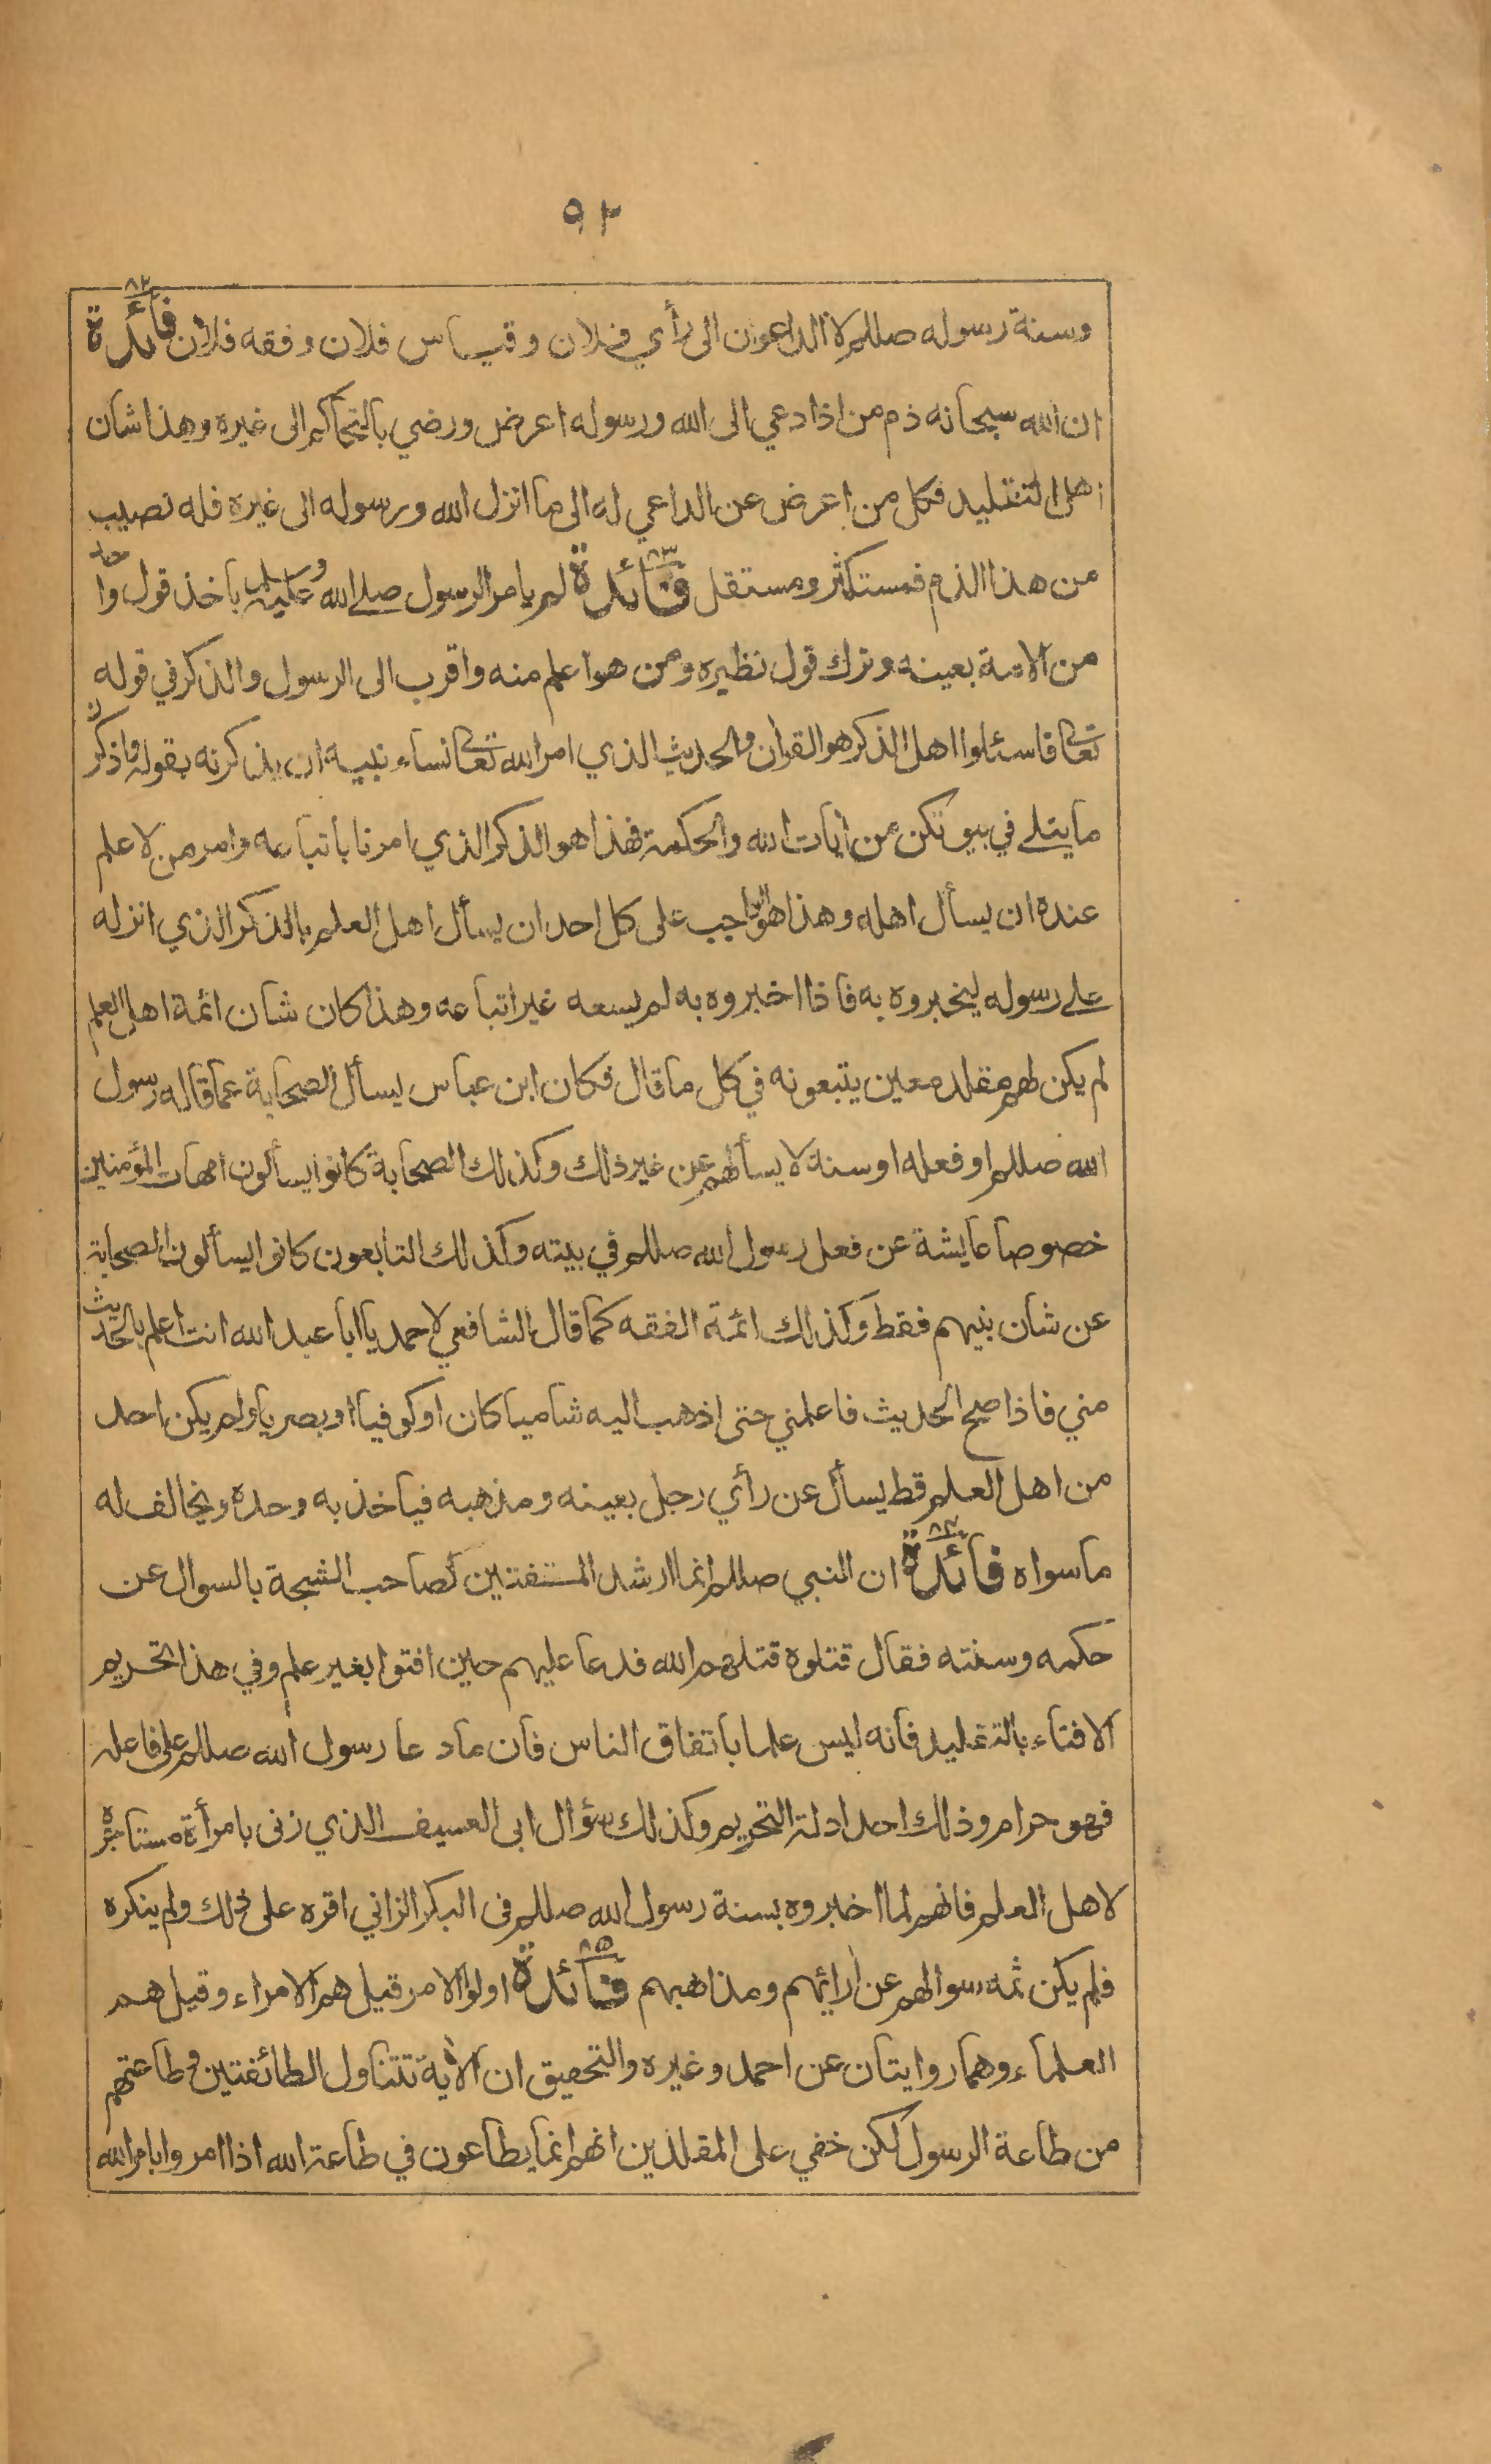 ٩٢
وسنة رسوله صللم لا الداعون الى رأي فلان وقياس فلان وفقه فلان فائدة ٨٢
ان الله سبحانه ذم من اذا دعي الى الله ورسوله اعرض ورضي بالتحاكم الى غيره وهذا شان
اهل التقليد فكل من اعرض عن الداعي له الى ما انزل الله ورسوله الى غيره فله نصيب
من هذا الذم فمستكثر ومستقل فائدة ٨٣ لم يامر الرسول صلے الله عليه وسلم باخذ قول واحد
من الامة بعينه وترك قول نظيره ومن هو اعلم منه واقرب الى الرسول والذكر في قوله
تعالى فاسئلوا اهل الذكر هو القران والحديث الذي امر الله تعالى نساء نبيه ان يذكرنه بقوله واذكرن
ما يتلے في بيوتكن من اٰيات الله والحكمة فهذا هو الذكر الذي امرنا باتباعه وامر من لا علم
عنده ان يسأل اهله وهذا هو الواجب على كل احد ان يسأل اهل العلم بالذكر الذي انزله
علے رسوله ليخبروه به فاذا اخبروه به لم يسعه غير اتباعه وهذا كان شان ائمة اهل العلم
لم يكن لهم مقلد معين يتبعونه في كل ما قال فكان ابن عباس يسأل الصحابة عما قاله رسول
الله صللم او فعله او سنة لا يسألهم عن غير ذلك وكذلك الصحابة كانوا يسألون امهات المؤمنين
خصوصا عايشة عن فعل رسول الله صللم في بيته وكذلك التابعون كانوا يسألون الصحابة
عن شان نبيهم فقط وكذلك ائمة الفقه كما قال الشافعي لاحمد يا ابا عبد الله انت اعلم بالحديث
مني فاذا صح الحديث فاعلمني حتى اذهب اليه شاميا كان او كوفيا او بصريا ولم يكن احد
من اهل العلم قط يسأل عن رأي رجل بعينه ومذهبه فياخذ به وحده ويخالف له
ما سواه فائدة ٨٤ ان النبي صللم انما ارشد المستفتين كصاحب الشجة بالسوال عن
حكمه وسنته فقال قتلوه قتلهم الله فدعا عليهم حين افتوا بغير علم وفي هذا تحريم
الافتاء بالتقليد فانه ليس علما باتفاق الناس فان ما دعا رسول الله صللم على فاعله
فهو حرام وذلك احد ادلة التحريم وكذلك سؤال ابى العسيف الذي زنى بامرأة مستاجره
لاهل العلم فانهم لما اخبروه بسنة رسول الله صللم فى البكر الزاني اقره على ذلك ولم ينكره
فلم يكن ثمه سوالهم عن ارائهم ومذاهبهم فائدة ٨٥ اولو الامر قيل هم الامراء وقيل هم
العلماء وهما روايتان عن احمد وغيره والتحقيق ان الاٰية تتناول الطائفتين وطاعتهم
من طاعة الرسول لكن خفي على المقلدين انهم انما يطاعون في طاعة الله اذا امروا بامر الله